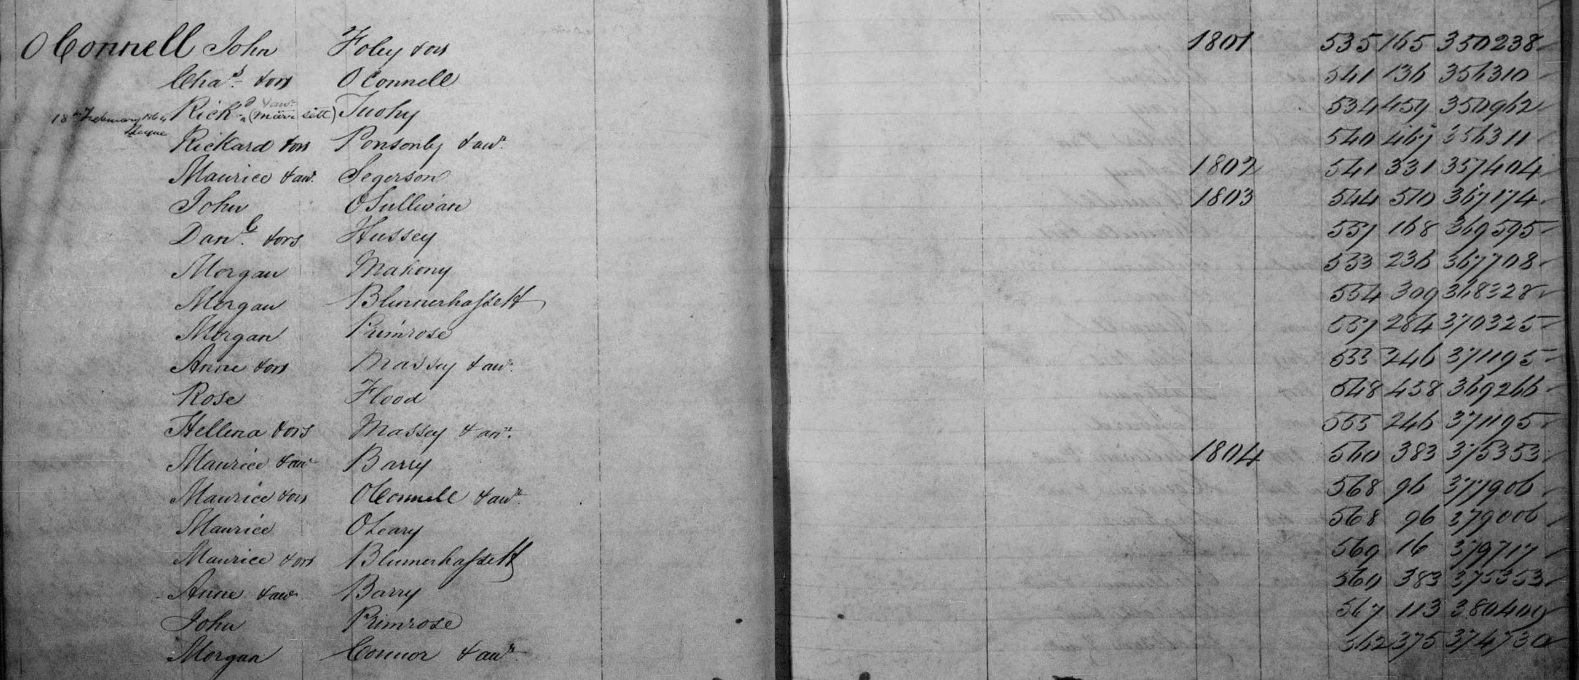 OConnell John Foley & ors 1801 535 165 350238
Chas. & ors OConnell 541 136 356310
Richd. & anr (marr sett) Tuohy 534 459 350962
18th February 1804
Rickard & ors Ponsonby & anr. 540 467 356311
Maurice & anr. Segerson 1802 541 331 357404
John OSullivan 1803 544 510 367174
Danl. & ors Hussey 557 168 369595
Morgan Mahony 553 236 367708
Morgan Blennerhassett 554 309 368328
Morgan Primrose 557 284 370325
Anne & ors Massey & anr. 555 246 371195
Rose Flood 548 458 369266
Hellena & ors Massey & anr. 555 246 371195
Maurice & anr Barry 1804 560 383 375353
Maurice & ors OConnell & anr. 568 96 377906
Maurice OLeary 568 96 379006
Maurice & ors Blennerhassett 569 16 379717
Anne & anr Barry 560 383 375353
John Primrose 567 113 380409
Morgan Connor & anr. 562 375 374730